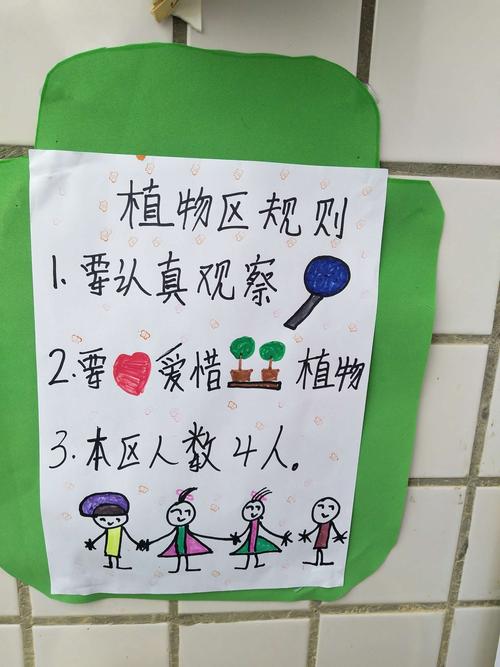 植物区规则
1. 要认真观察
2. 要爱惜植物
3. 本区人数4人。